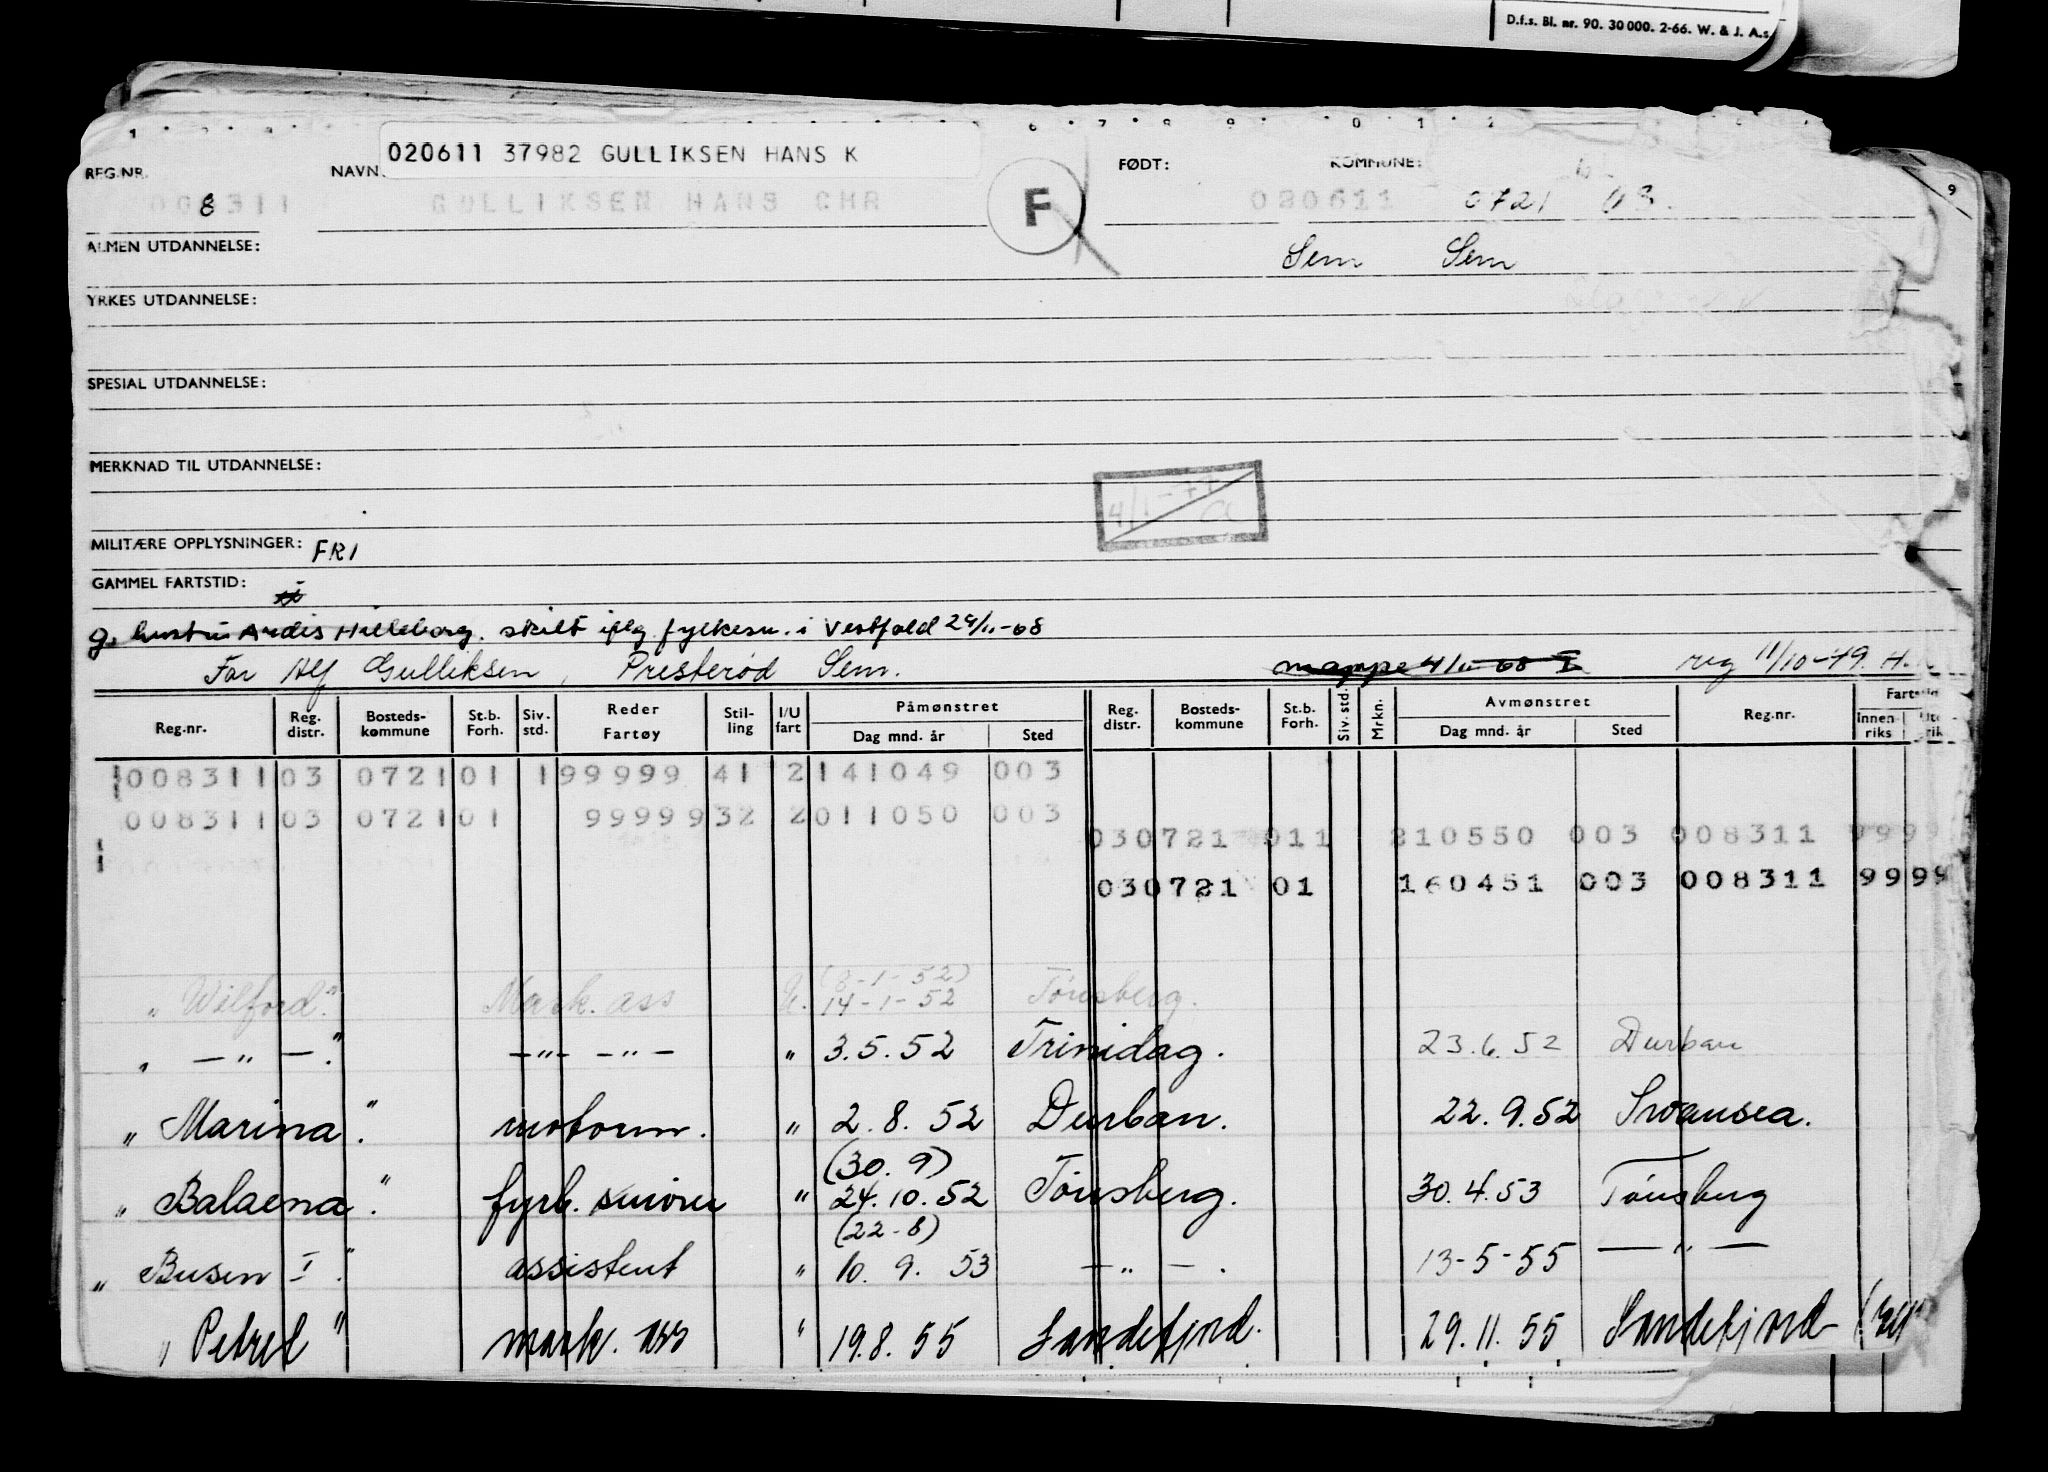 D.f.s. Bl. nr. 90. 30 000. 2-66. W. & J. A.s.
020611 37982 GULLIKSEN HANS K
REG.NR. NAVN: FØDT: KOMMUNE:
008311 GULLIKSEN HANS CHR F 020611 0721 03.
ALMEN UTDANNELSE: Sem Sem
YRKES UTDANNELSE:
SPESIAL UTDANNELSE:
MERKNAD TIL UTDANNELSE:
4/1-77
MILITÆRE OPPLYSNINGER: FRI
GAMMEL FARTSTID:
g. hustru Ardis Hilleborg. skilt iflg fylkesm. i Vestfold 29/11-68
Far Alf Gulliksen, Presterød Sem. mappe 4/11-68 reg 11/10-49. H.
Reg.nr. Reg. distr. Bosteds-kommune St.b. Forh. Siv. std. Reder Fartøy Stil-ling I/U fart Påmønstret Dag mnd. år Sted Reg. distr. Bosteds-kommune St.b. Forh. Siv. std. Mrkn. Avmønstret Dag mnd. år Sted Reg.nr. Fartstid Innen-riks
008311 03 0721 01 1 99999 41 2 141049 003
008311 03 0721 01 99999 32 2 011050 003
030721 011 210550 003 008311 9999
030721 01 160451 003 008311 9999
(8-1-52)
" Wilford." Mask. ass U. 14-1-52 Tønsberg.
" — " — ." — " — — " — " 3.5.52 Trinidag. 23.6.52 Durban
" Marina". motorm. " 2.8.52 Durban. 22.9.52 Swansea.
(30.9)
" Balaena". fyrb. smører " 24.10.52 Tønsberg. 30.4.53 Tønsberg
(22-8)
" Busen I". assistent " 10.9.53 — " — . 13-5-55 — " —
" Petrel" mask. ass " 19.8.55 Sandefjord. 29.11.55 Sandefjord